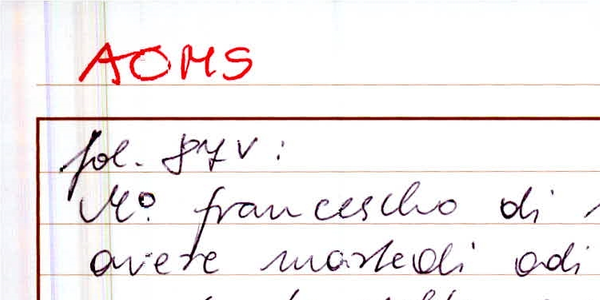 AOMS
fol. 87v:
Mº. francescho di
avere martedi adi